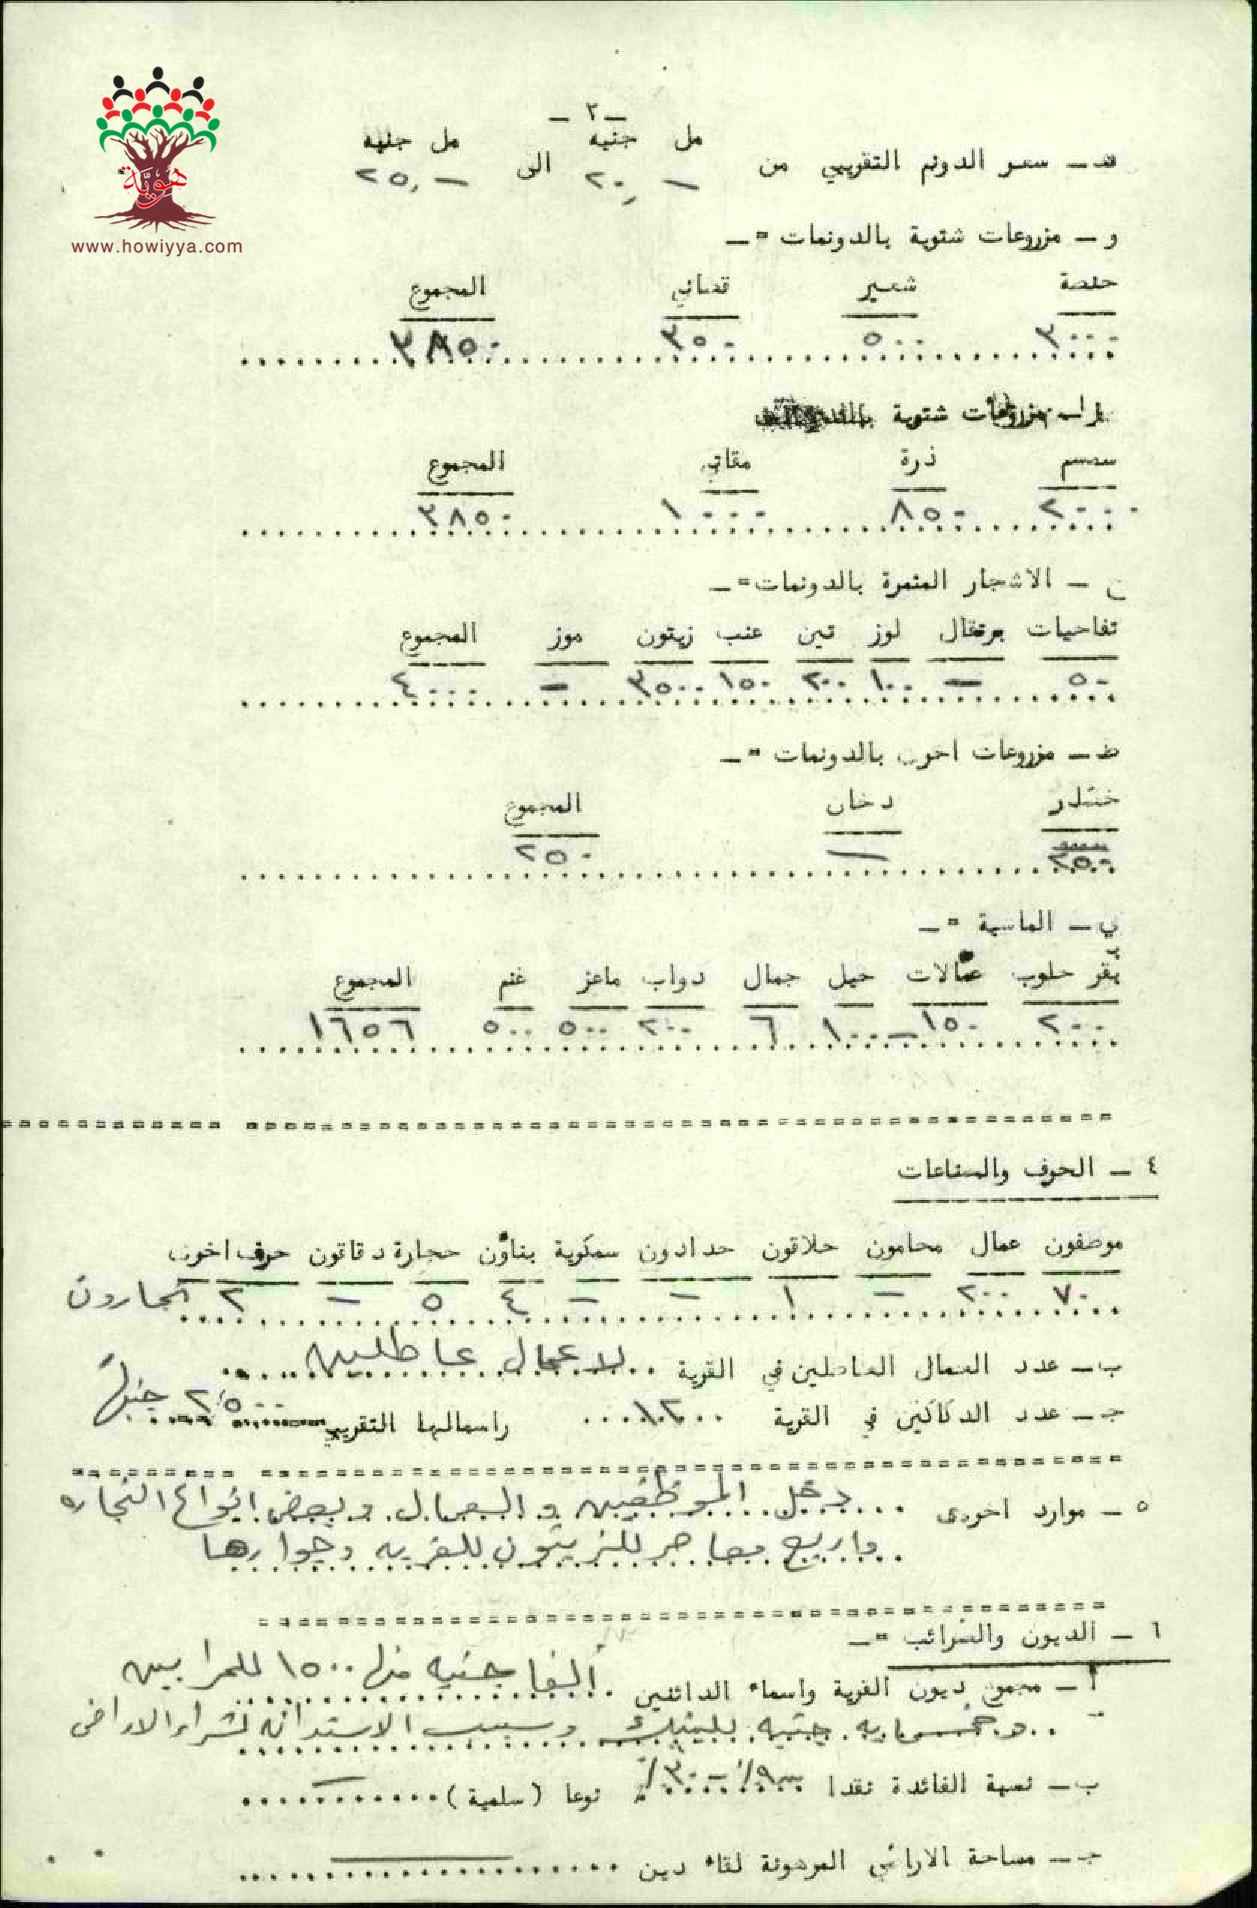 هويّة
www.howiyya.com
— ٢ —
مل جنيه مل جنيه
هـ — سعر الدونم التقريبي من — ٢٠, الى — ٢٥,
و — مزروعات شتوية بالدونمات = —
حنطة شعير قطاني المجموع
٣٠٠٠ ٥٠٠ ٣٥٠ ٣٨٥٠
مزروعات شتوية
سمسم ذرة مقاثي المجموع
٢٠٠٠ ٨٥٠ ١٠٠٠ ٣٨٥٠
ح — الاشجار المثمرة بالدونمات = —
تفاحيات برتقال لوز تين عنب زيتون موز المجموع
٥٠ — ١٠٠ ٢٠٠ ١٥٠ ٣٥٠٠ — ٤٠٠٠
ط — مزروعات اخرى بالدونمات = —
خضار دخان المجموع
٢٥٠ — ٢٥٠
ي — الماشية = —
بقر حلوب عمّالات خيل جمال دواب ماعز غنم المجموع
٢٠٠ ١٥٠ — ١٠٠ ٦ ٢٠٠ ٥٠٠ ٥٠٠ ١٦٥٦
٤ — الحرف والصناعات
موظفون عمال محامون حلاقون حدادون سمكرية بناؤن حجارة دقاقون حرف اخرى
٧٠ ٢٠٠ — ١ — — ٤ ٥ — ٢ نجارون
ب — عدد العمال العاطلين في القرية لا عمال عاطلين
جـ — عدد الدكاكين في القرية ١٢ راسمالها التقريبي ٢٥٠٠ جنيهاً
٥ — موارد اخرى دخل الموظفين والعمال وبعض انواع التجاره
واربع معاصر للزيتون للقريه وجوارها
٦ — الديون والضرائب = —
أ — مجموع ديون القرية واسماء الدائنين ألفا جنيه منها ١٥٠٠ للمرابين
وخمسمايه جنيه للبنك وسبب الاستدانه لشراء الاراضي
ب — نسبة الفائدة نقدا ٩٪ — ٣٠٪ نوعا (سلمية) —
جـ — مساحة الاراضي المرهونة لقاء دين —